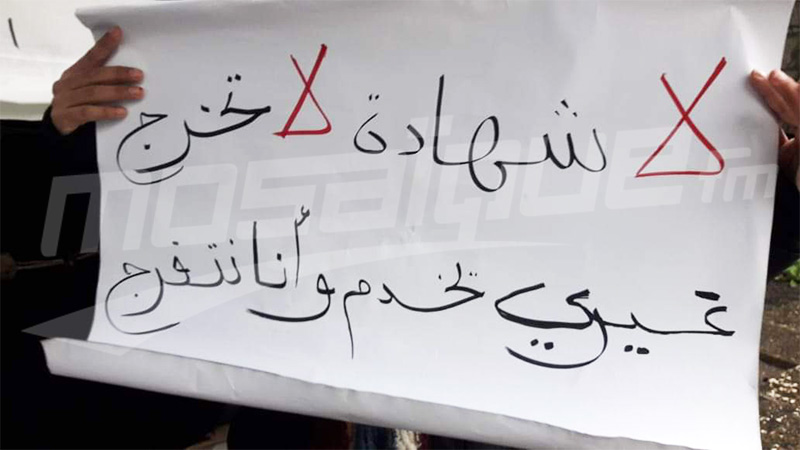 لا شهادة لا تخرج
غيري يخدم وأنا نتفرج
mosaique fm